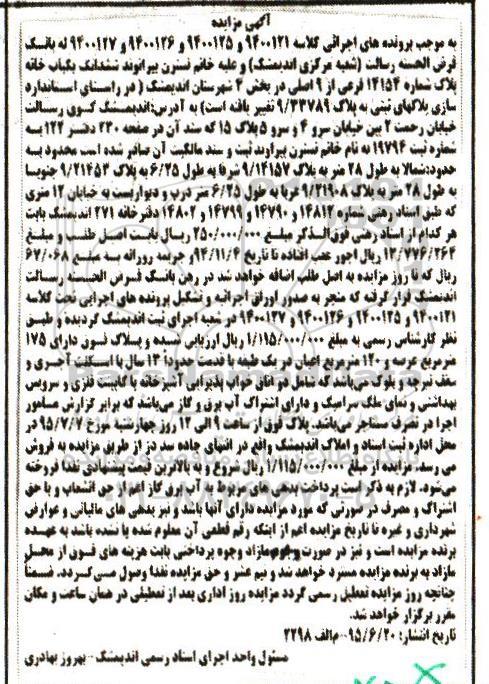 آگهی مزایده
به موجب پرونده های اجرائی کلاسه ۹۴۰۰۱۲۱ و ۹۴۰۰۱۲۵ و ۹۴۰۰۱۲۶ و ۹۴۰۰۱۲۷ له بانک
قرض الحسنه رسالت (شعبه مرکزی اندیمشک) و علیه خانم نسترن بیرانوند ششدانگ یکباب خانه
پلاک شماره ۱۲۱۵۴ فرعی از ۹ اصلی در بخش ۳ شهرستان اندیمشک ( در راستای استاندارد
سازی پلاکهای ثبتی به پلاک ۹/۳۳۷۸۹ تغییر یافته است) به آدرس: اندیمشک کوی رسالت
خیابان رحمت ۲ بین خیابان سرو ۴ و سرو ۵ پلاک ۱۵ که سند آن در صفحه ۲۳۰ دفتر ۱۲۲ به
شماره ثبت ۱۹۷۹۴ به نام خانم نسترن بیراوند ثبت و سند مالکیت آن صادر شده است محدود به
حدود: شمالا به طول ۲۸ متر به پلاک ۹/۱۴۱۵۷ شرقا به طول ۶/۲۵ به پلاک ۹/۲۱۴۵۳ جنوبا
به طول ۲۸ متر به پلاک ۹/۲۱۹۰۸ غربا به طول ۶/۲۵ متر درب و دیواریست به خیابان ۱۲ متری
که طبق اسناد رهنی شماره ۱۴۸۱۲ و ۱۴۷۹۰ و ۱۴۷۹۹ و ۱۴۸۰۲ دفترخانه ۲۷۱ اندیمشک بابت
هر کدام از اسناد رهنی فوق الذکر مبلغ ۲۵۰/۰۰۰/۰۰۰ ریال بابت اصل طلب و مبلغ
۱۲/۷۷۶/۲۶۴ ریال اجور عقب افتاده تا تاریخ ۹۴/۱۱/۴ و جریمه روزانه به مبلغ ۶۲/۰۶۸
ریال که تا روز مزایده به اصل طلب اضافه خواهد شد در رهن بانک قرض الحسنه رسالت
اندیمشک قرار گرفته که منجر به صدور اوراق اجرائیه و تشکیل پرونده های اجرایی تحت کلاسه
۹۴۰۰۱۲۱ و ۹۴۰۰۱۲۵ و ۹۴۰۰۱۲۶ و ۹۴۰۰۱۲۷ در شعبه اجرای ثبت اندیمشک گردیده و طبق
نظر کارشناس رسمی به مبلغ ۱/۱۱۵/۰۰۰/۰۰۰ ریال ارزیابی شده و پلاک فوق دارای ۱۷۵
مترمربع عرصه و ۱۲۰ مترمربع اعیان در یک طبقه با قدمت حدوداً ۱۳ سال با اسکلت آجری و
سقف تیرچه و بلوک می‌باشد که شامل دو اتاق خواب پذیرایی آشپزخانه با کابینت فلزی و سرویس
بهداشتی و نمای ملک سرامیک و دارای اشتراک آب برق و گاز می‌باشد که برابر گزارش مامور
اجرا در تصرف مستاجر می‌باشد. پلاک فوق از ساعت ۹ الی ۱۲ روز چهارشنبه مورخ ۹۵/۷/۷ در
محل اداره ثبت اسناد و املاک اندیمشک واقع در انتهای جاده سد دز از طریق مزایده به فروش
می رسد. مزایده از مبلغ ۱/۱۱۵/۰۰۰/۰۰۰ ریال شروع و به بالاترین قیمت پیشنهادی نقدا فروخته
میشود. لازم به ذکر است پرداخت بدهی های مربوط به آب، برق، گاز اعم از حق انشعاب و یا حق
اشتراک و مصرف در صورتی که مورد مزایده دارای آنها باشد و نیز بدهی های مالیاتی و عوارض
شهرداری و غیره تا تاریخ مزایده اعم از اینکه رقم قطعی آن معلوم شده یا نشده باشد به عهده
برنده مزایده است و نیز در صورت وجود مازاد وجوه پرداختی بابت هزینه های فوق از محل
مازاد به برنده مزایده مسترد خواهد شد و نیم عشر و حق مزایده نقدا وصول می گردد. ضمنا
چنانچه روز مزایده تعطیل رسمی گردد مزایده روز اداری بعد از تعطیلی در همان ساعت و مکان
مقرر برگزار خواهد شد.
تاریخ انتشار: ۹۵/۶/۲۰-م الف ۲۲۹۸
مسئول واحد اجرای اسناد رسمی اندیمشک-بهروز بهادری